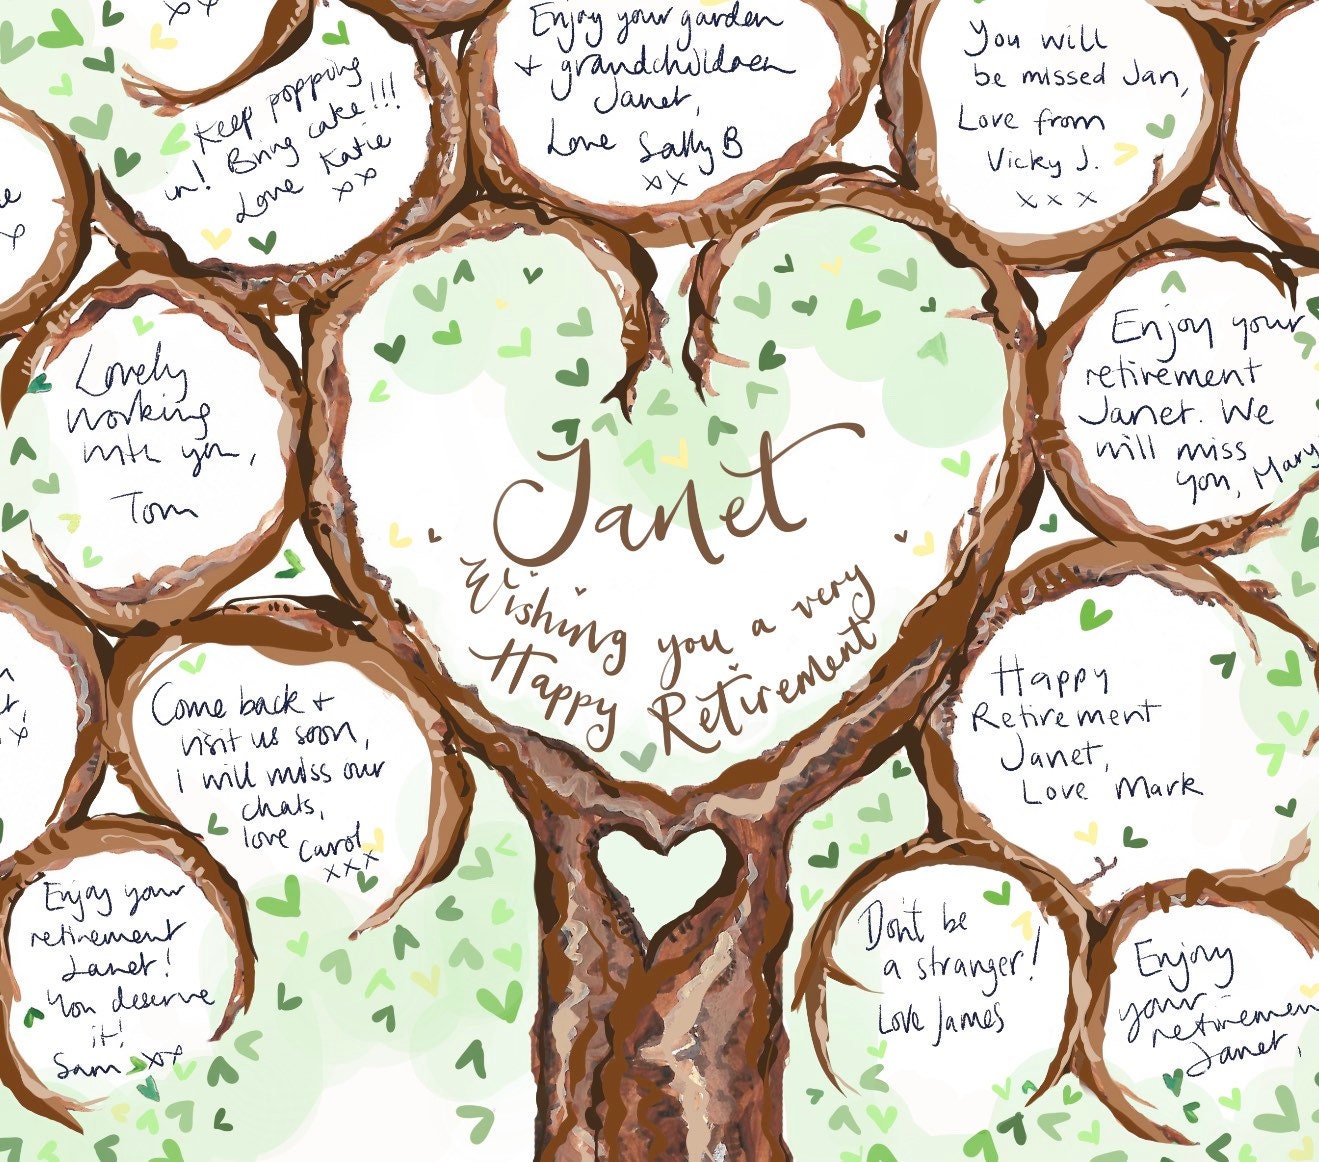 xx
Keep popping
in! Bring cake!!!
Love Katie
xx
Enjoy your garden
+ grandchildren
Janet,
Love Sally B
xx
You will
be missed Jan,
Love from
Vicky J.
x x x
x
Lovely
working
with you,
Tom
Janet
Wishing you a very
Happy Retirement
Enjoy your
retirement
Janet. We
will miss
you, Mary
Come back +
visit us soon,
I will miss our
chats,
love Carol
xxx
Happy
Retirement
Janet,
Love Mark
x
Enjoy your
retirement
Janet!
You deserve
it!
Sam xx
Don't be
a stranger!
Love James
Enjoy
your
retiremen
Janet,